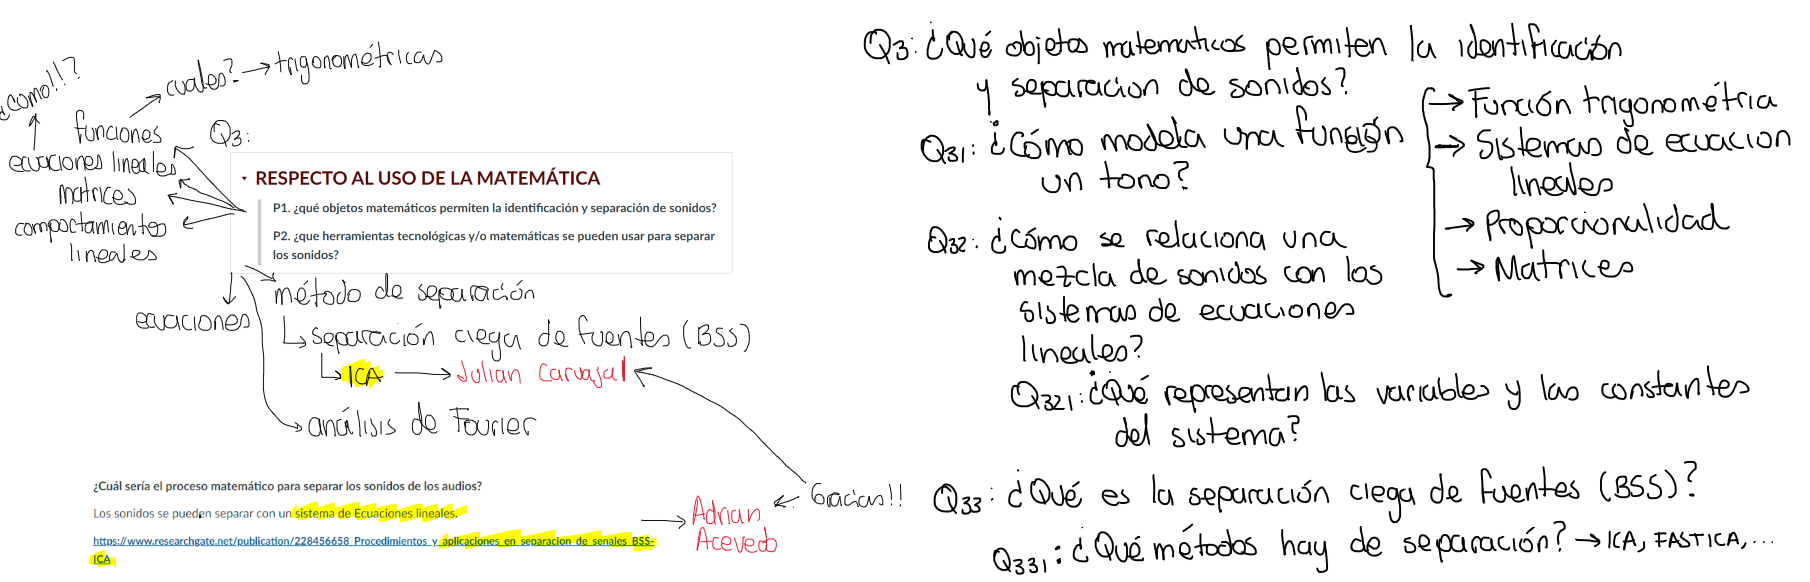 ¿como!!?
cuales? → trigonométricas
funciones
Q3:
ecuaciones lineales
matrices
comportamientos
lineales
RESPECTO AL USO DE LA MATEMÁTICA
P1. ¿qué objetos matemáticos permiten la identificación y separación de sonidos?
P2. ¿que herramientas tecnológicas y/o matemáticas se pueden usar para separar
los sonidos?
ecuaciones
método de separación
separación ciega de fuentes (BSS)
ICA → Julian Carvajal
análisis de Fourier
¿Cuál sería el proceso matemático para separar los sonidos de los audios?
Los sonidos se pueden separar con un sistema de Ecuaciones lineales.
https://www.researchgate.net/publication/228456658_Procedimientos_y_aplicaciones_en_separacion_de_senales_BSS-
ICA
Adrian
Acevedo
Gracias!!
Q3: ¿Qué objetos matematicos permiten la identificación
y separacion de sonidos?
→ Función trigonométria
→ Sistemas de ecuacion
lineales
→ Proporcionalidad
→ Matrices
Q31: ¿Cómo modela una función
un tono?
Q32: ¿Cómo se relaciona una
mezcla de sonidos con los
sistemas de ecuaciones
lineales?
Q321: ¿Qué representan las variables y las constantes
del sistema?
Q33: ¿Qué es la separación ciega de fuentes (BSS)?
Q331: ¿Qué métodos hay de separación? → ICA, FASTICA,...